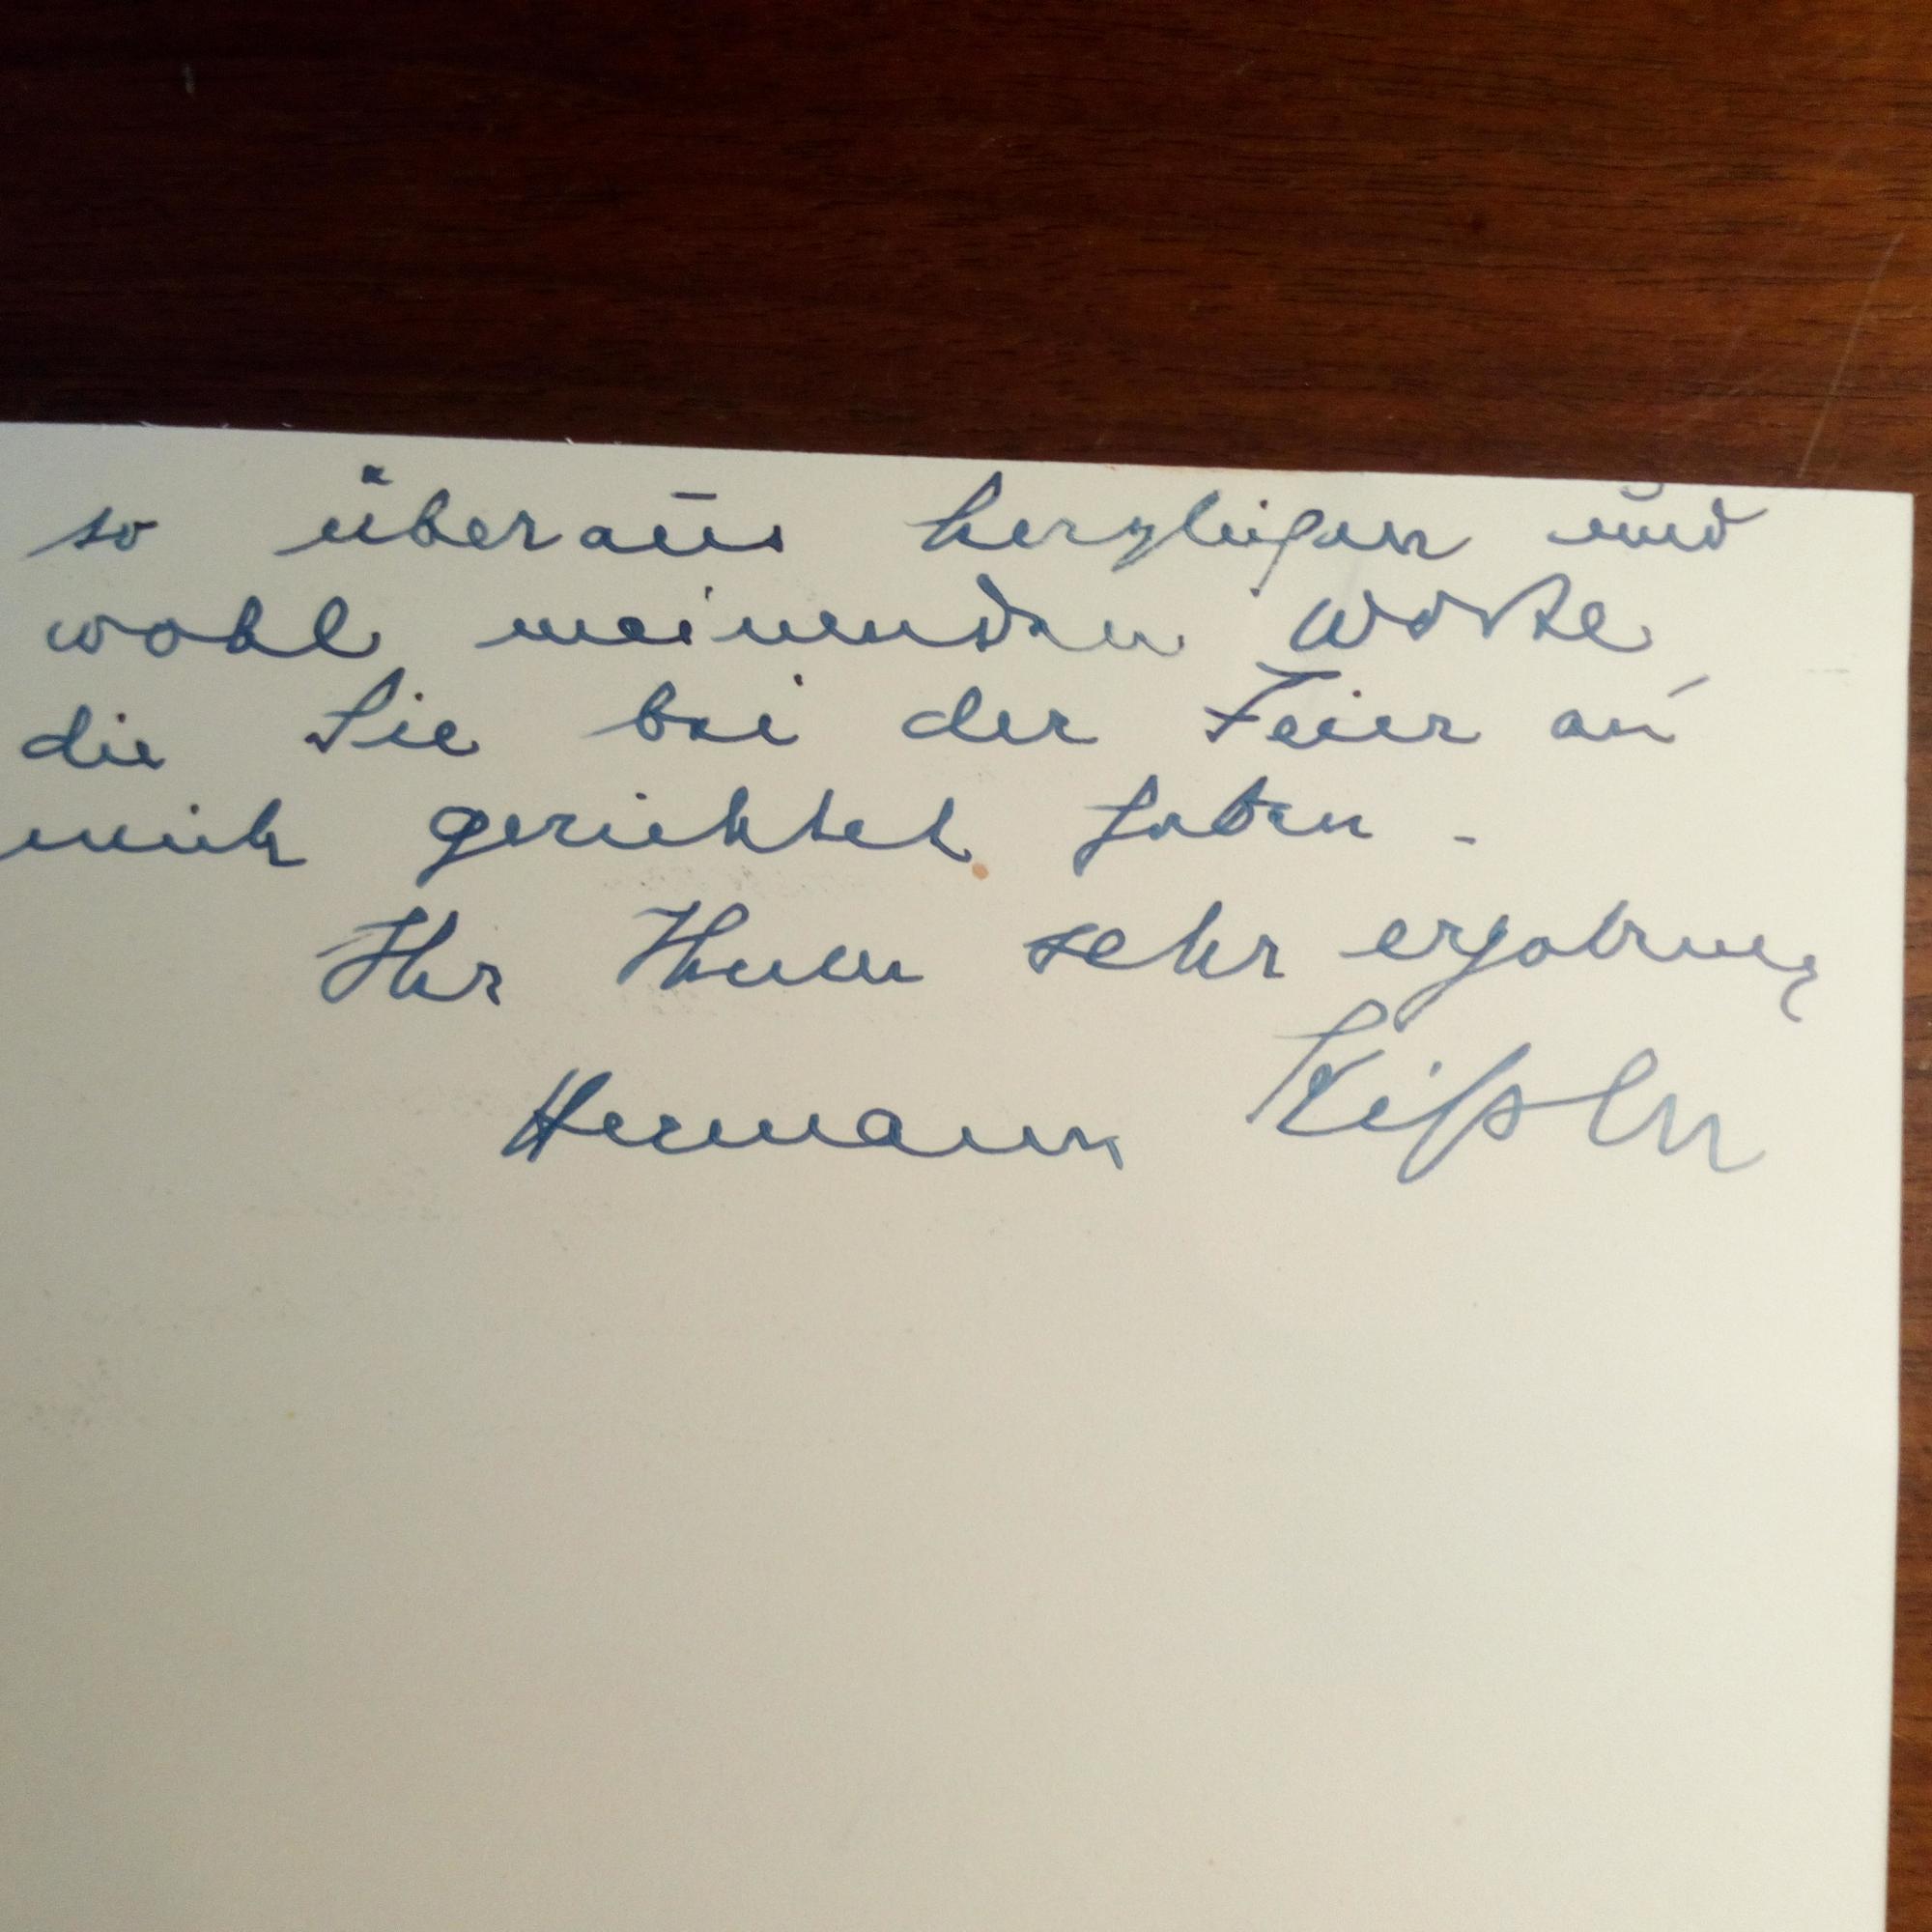 so überaus herzlichen und
wohl meinenden Worte
die Sie bei der Feier an
mich gerichtet haben.
Ihr Ihnen sehr ergebener
Hermann